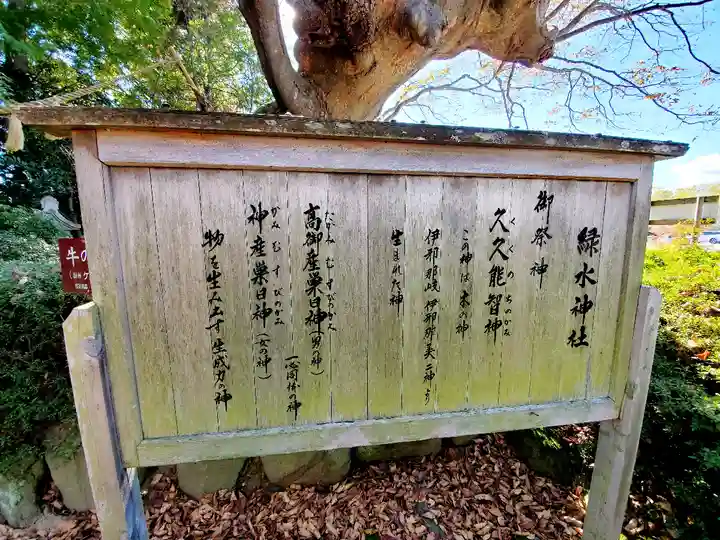 緑水神社
御祭神
久久能智神
くくのちのかみ
この神は木の神
伊那那岐 伊那那美 二神より
生まれた神
高御産巣日神(男の神)
たかみむすびのかみ
一心同体の神
神産巣日神(女の神)
かみむすびのかみ
物を生み出す生成力の神
牛の